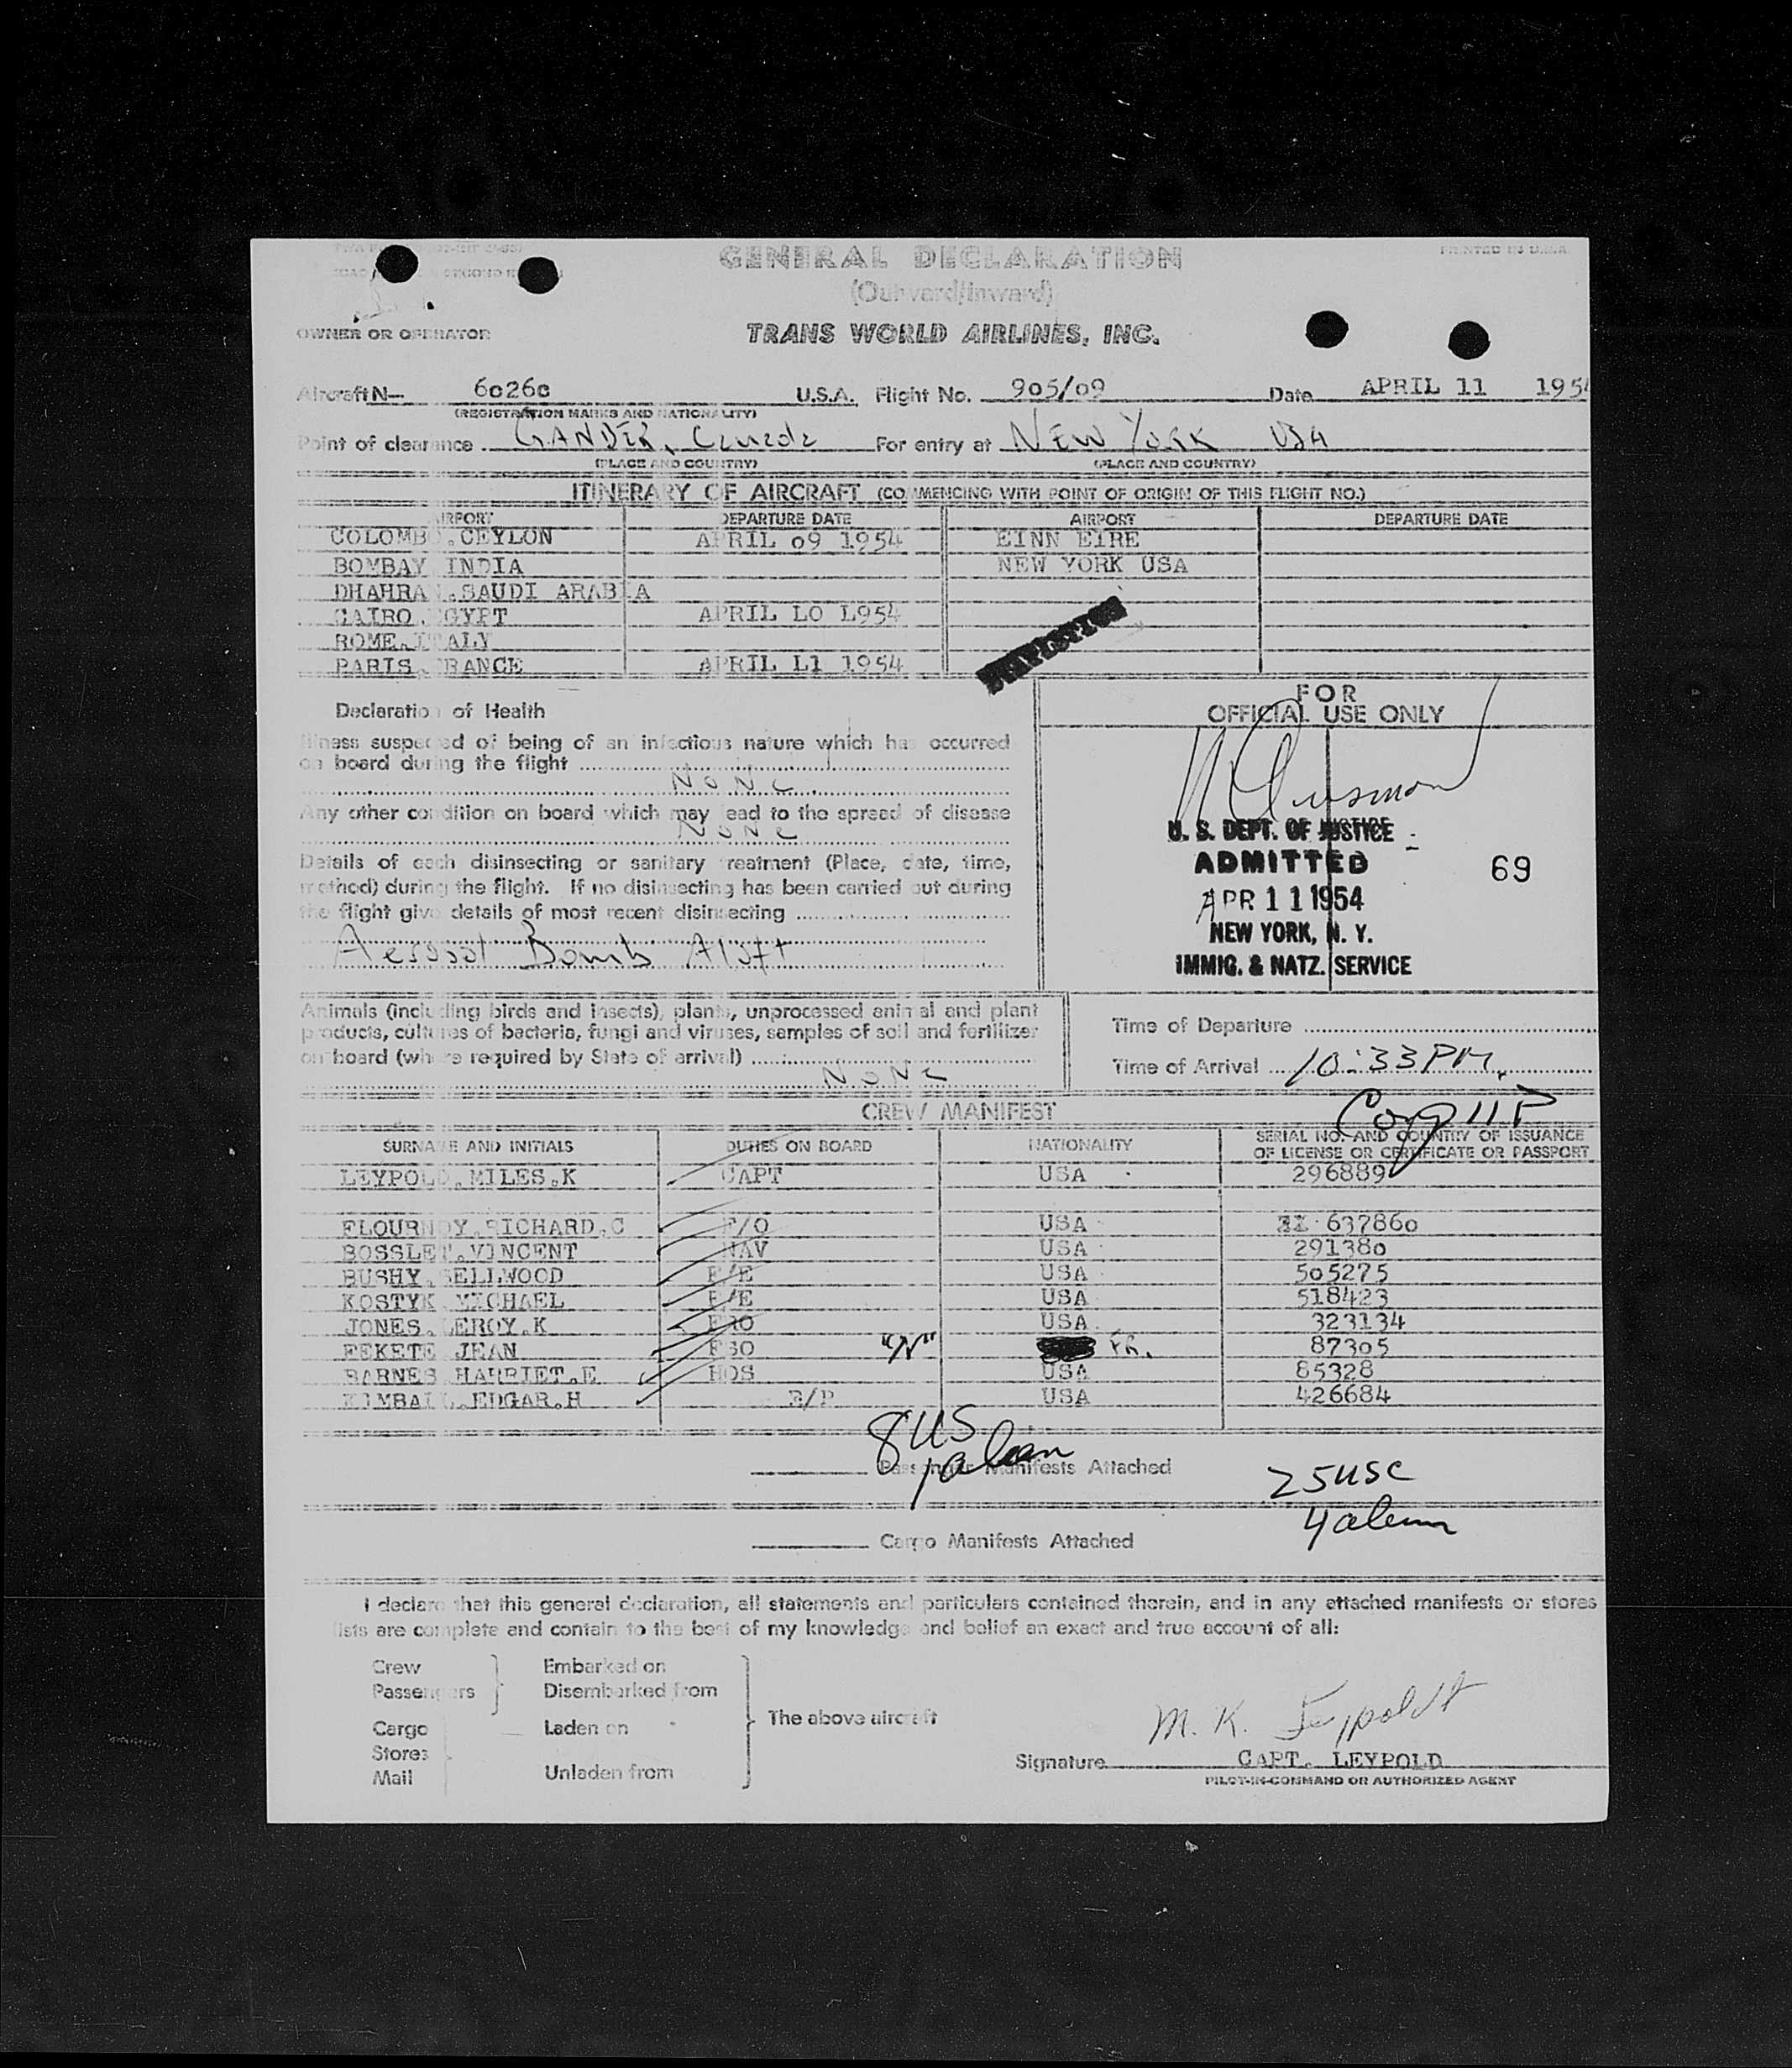 GENERAL DECLARATION
PRINTED IN U.S.A.
(Outward/Inward)
OWNER OR OPERATOR
TRANS WORLD AIRLINES, INC.
Aircraft N— 6o26c U.S.A. Flight No. 9o5/o9 Date APRIL 11 195
(REGISTRATION MARKS AND NATIONALITY)
Point of clearance GANDER, Canada For entry at NEW YORK USA
(PLACE AND COUNTRY) (PLACE AND COUNTRY)
ITINERARY OF AIRCRAFT (COMMENCING WITH POINT OF ORIGIN OF THIS FLIGHT NO.)
AIRPORT DEPARTURE DATE AIRPORT DEPARTURE DATE
COLOMBO.CEYLON APRIL o9 1954 EINN EIRE
BOMBAY INDIA NEW YORK USA
DHAHRAN.SAUDI ARABIA
CAIRO.EGYPT APRIL LO L954
ROME.ITALY
PARIS.FRANCE APRIL L1 1954
Declaration of Health
FOR
OFFICIAL USE ONLY
Illness suspected of being of an infectious nature which has occurred
on board during the flight
NONE
Any other condition on board which may lead to the spread of disease
NONE
Details of each disinsecting or sanitary treatment (Place, date, time,
method) during the flight. If no disinsecting has been carried out during
the flight give details of most recent disinsecting
Aerosol Bomb Aloft
U. S. DEPT. OF JUSTICE
ADMITTED
69
APR 11 1954
NEW YORK, N. Y.
IMMIG. & NATZ. SERVICE
Animals (including birds and insects), plants, unprocessed animal and plant
products, cultures of bacteria, fungi and viruses, samples of soil and fertilizer
on board (where required by State of arrival)
NONE
Time of Departure
Time of Arrival 10:33 PM.
CREW MANIFEST
SURNAME AND INITIALS DUTIES ON BOARD NATIONALITY SERIAL NO. AND COUNTRY OF ISSUANCE
OF LICENSE OR CERTIFICATE OR PASSPORT
LEYPOLD.MILES.K CAPT USA 296889
FLOURNOY.RICHARD.C F/O USA 63786o
BOSSLET.VINCENT NAV USA 29138o
BUSHY.BELLWOOD F/E USA 5o5275
KOSTYK MICHAEL F/E USA 518423
JONES.LEROY.K FRO USA 323134
FEKETE JEAN FSO "N" FR. 873o5
BARNES HARRIET.E HOS USA 85328
KIMBALL.EDGAR.H E/P USA 426684
8 US
1 alien
Passenger Manifests Attached
25 USC
4 alien
Cargo Manifests Attached
I declare that this general declaration, all statements and particulars contained therein, and in any attached manifests or stores
lists are complete and contain to the best of my knowledge and belief an exact and true account of all:
Crew Embarked on
Passengers Disembarked from
Cargo Laden on The above aircraft
Stores
Mail Unladen from
M. K. Leypoldt
Signature CAPT. LEYPOLD
PILOT-IN-COMMAND OR AUTHORIZED AGENT